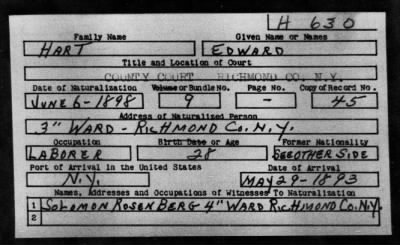 H 630
Family Name Given Name or Names
HART EDWARD
Title and Location of Court
COUNTY COURT RICHMOND CO. N.Y.
Date of Naturalization Volume or Bundle No. Page No. Copy of Record No.
JUNE 6-1898 9 - 45
Address of Naturalized Person
3" WARD - RICHMOND Co. N.Y.
Occupation Birth Date or Age Former Nationality
LABORER 28 SEE OTHER SIDE
Port of Arrival in the United States Date of Arrival
N.Y. MAY 29-1893
Names, Addresses and Occupations of Witnesses To Naturalization
1 SOLOMON ROSENBERG 4" WARD RICHMOND CO. N.Y.
2